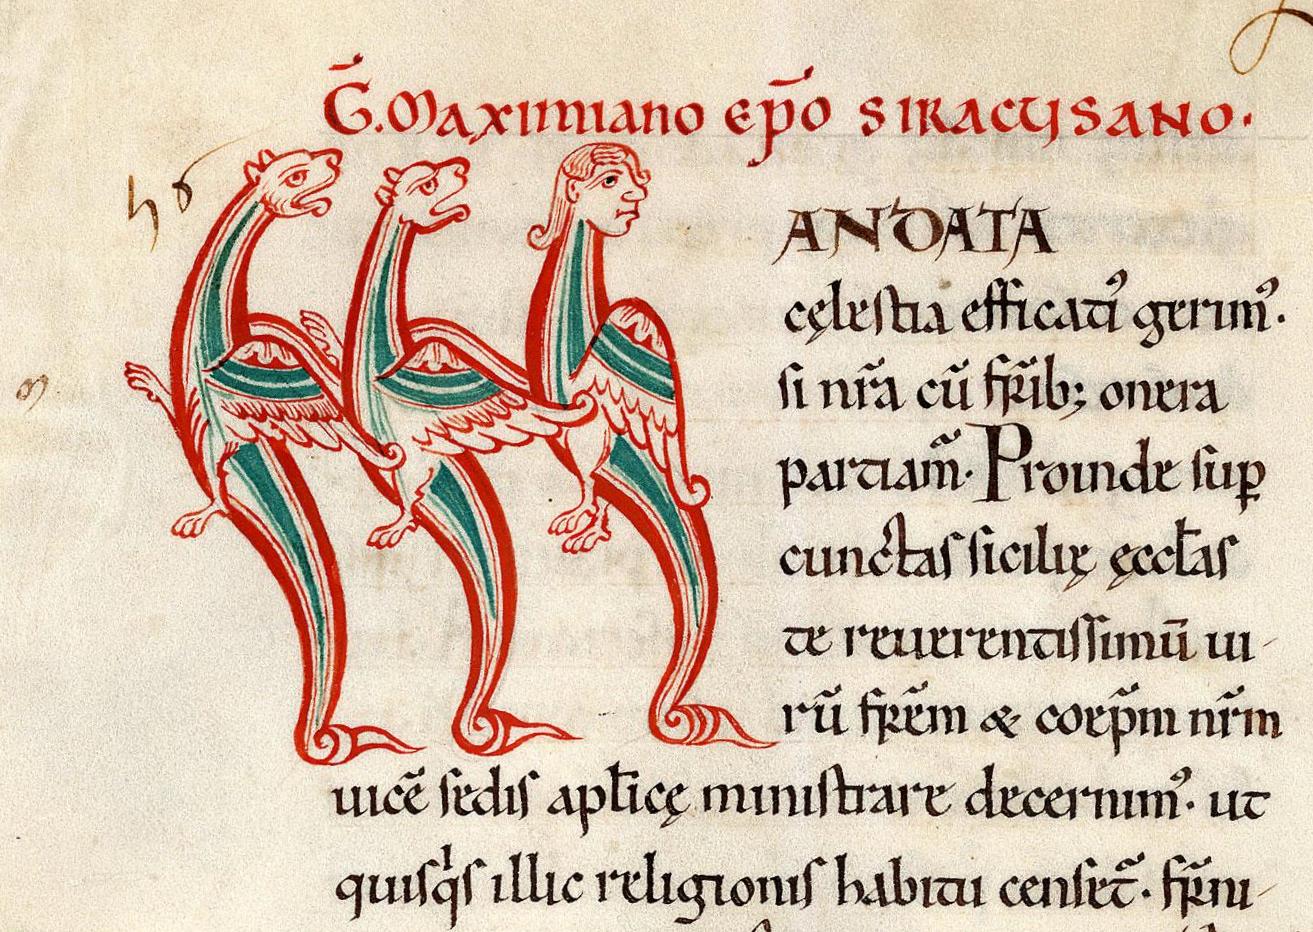 G̅. MAXIMIANO EP̅O SIRACUSANO.
M ANDATA
cęlestia efficati᾽ gerim᾽.
si nr̄a cū fr̄ib; onera
partiam̄. Proinde sup̱
cunctas sicilię ęccl̄as
te reuerentissimū ui-
rū fr̄em & coep̄m nr̄m
uicē sedis apl̄icę ministrare decernim᾽. ut
quisq'́s illic religionis habitu censet̄. fr̄ni-